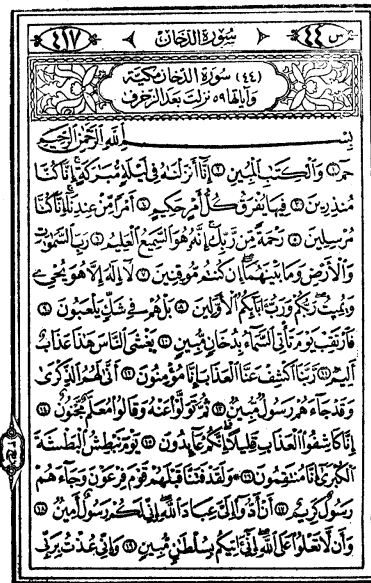 س ٤٤ سورة الدخان ٤١٧
(٤٤) سورة الدخان مكية
وآياتها ٥٩ نزلت بعد الزخرف
بسم الله الرحمن الرحيم
حم ١ والكتاب المبين ٢ إنا أنزلناه في ليلة مباركة إنا كنا
منذرين ٣ فيها يفرق كل أمر حكيم ٤ أمرا من عندنا إنا كنا
مرسلين ٥ رحمة من ربك إنه هو السميع العليم ٦ رب السموات
والأرض وما بينهما إن كنتم موقنين ٧ لا إله إلا هو يحي
ويميت ربكم ورب آبائكم الأولين ٨ بل هم في شك يلعبون ٩
فارتقب يوم تأتي السماء بدخان مبين ١٠ يغشى الناس هذا عذاب
أليم ١١ ربنا اكشف عنا العذاب إنا مؤمنون ١٢ أنى لهم الذكرى
وقد جاءهم رسول مبين ١٣ ثم تولوا عنه وقالوا معلم مجنون ١٤
إنا كاشفوا العذاب قليلا إنكم عائدون ١٥ يوم نبطش البطشة
الكبرى إنا منتقمون ١٦ ولقد فتنا قبلهم قوم فرعون وجاءهم
رسول كريم ١٧ أن أدوا إلي عباد الله إني لكم رسول أمين ١٨
وأن لا تعلوا على الله إني آتيكم بسلطان مبين ١٩ وإني عذت بربي